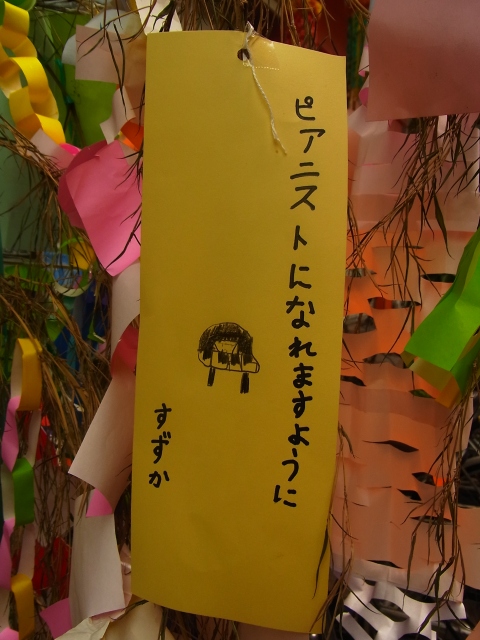 ピアニストになれますように
すずか